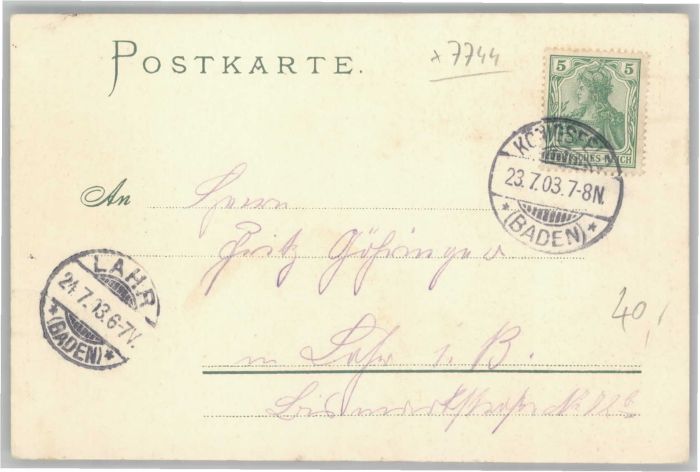 POSTKARTE.
x 7744
5 5
DEUTSCHES REICH
KÖNIGSF
23.7.03.7-8N.
*(BADEN)*
An Herrn
Fritz Göhringer
LAHR
24.7.03.6-7V.
*(BADEN)*
40,
in Lahr i. B.
Bismarckstraße No